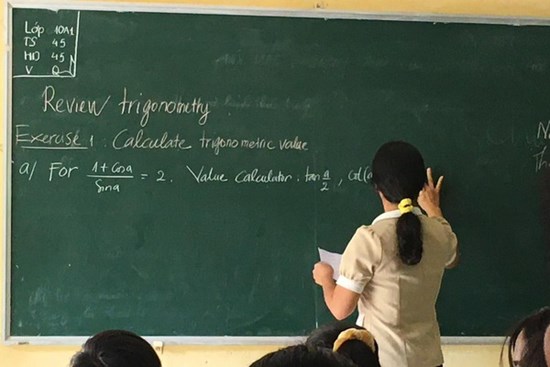 Lớp 10A1
TS 45
HD 45
V 0
Review trigonometry
Exercise 1: Calculate trigonometric value
a/ For (1 + cosa)/(sina) = 2. Value calculator: tan a/2, cot(
N
Th